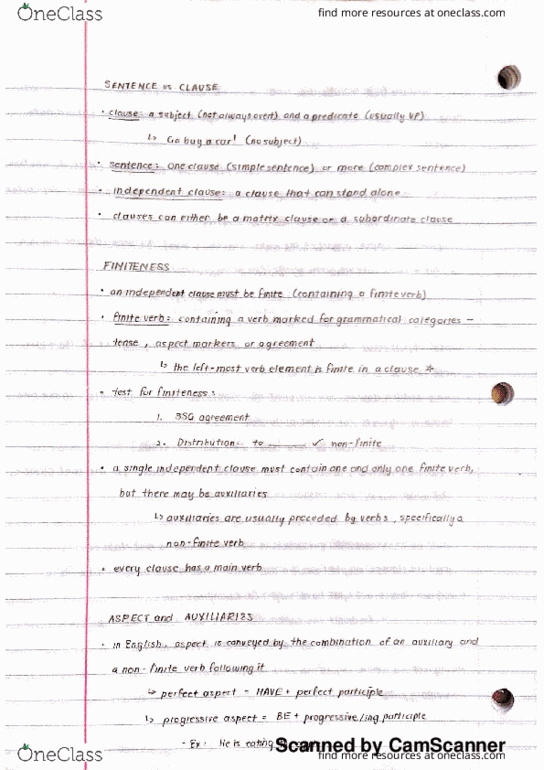 OneClass
find more resources at oneclass.com
SENTENCE vs CLAUSE
• clause: a subject (not always overt) and a predicate (usually VP)
↳ Go buy a car! (no subject)
• sentence: one clause (simple sentence) or more (complex sentence)
• independent clause: a clause that can stand alone
• clauses can either be a matrix clause or a subordinate clause
FINITENESS
• an independent clause must be finite (containing a finite verb)
• finite verb: containing a verb marked for grammatical categories –
tense, aspect markers or agreement
↳ the left-most verb element is finite in a clause *
• test for finiteness:
1. 3SG agreement
2. Distribution: to ______ ✓ non-finite
• a single independent clause must contain one and only one finite verb,
but there may be auxiliaries
↳ auxiliaries are usually preceded by verbs, specifically a
non-finite verb
• every clause has a main verb
ASPECT and AUXILIARIES
• in English, aspect is conveyed by the combination of an auxiliary and
a non-finite verb following it
↳ perfect aspect = HAVE + perfect participle
↳ progressive aspect = BE + progressive/ing participle
- Ex: He is eating
Scanned by CamScanner
OneClass
find more resources at oneclass.com